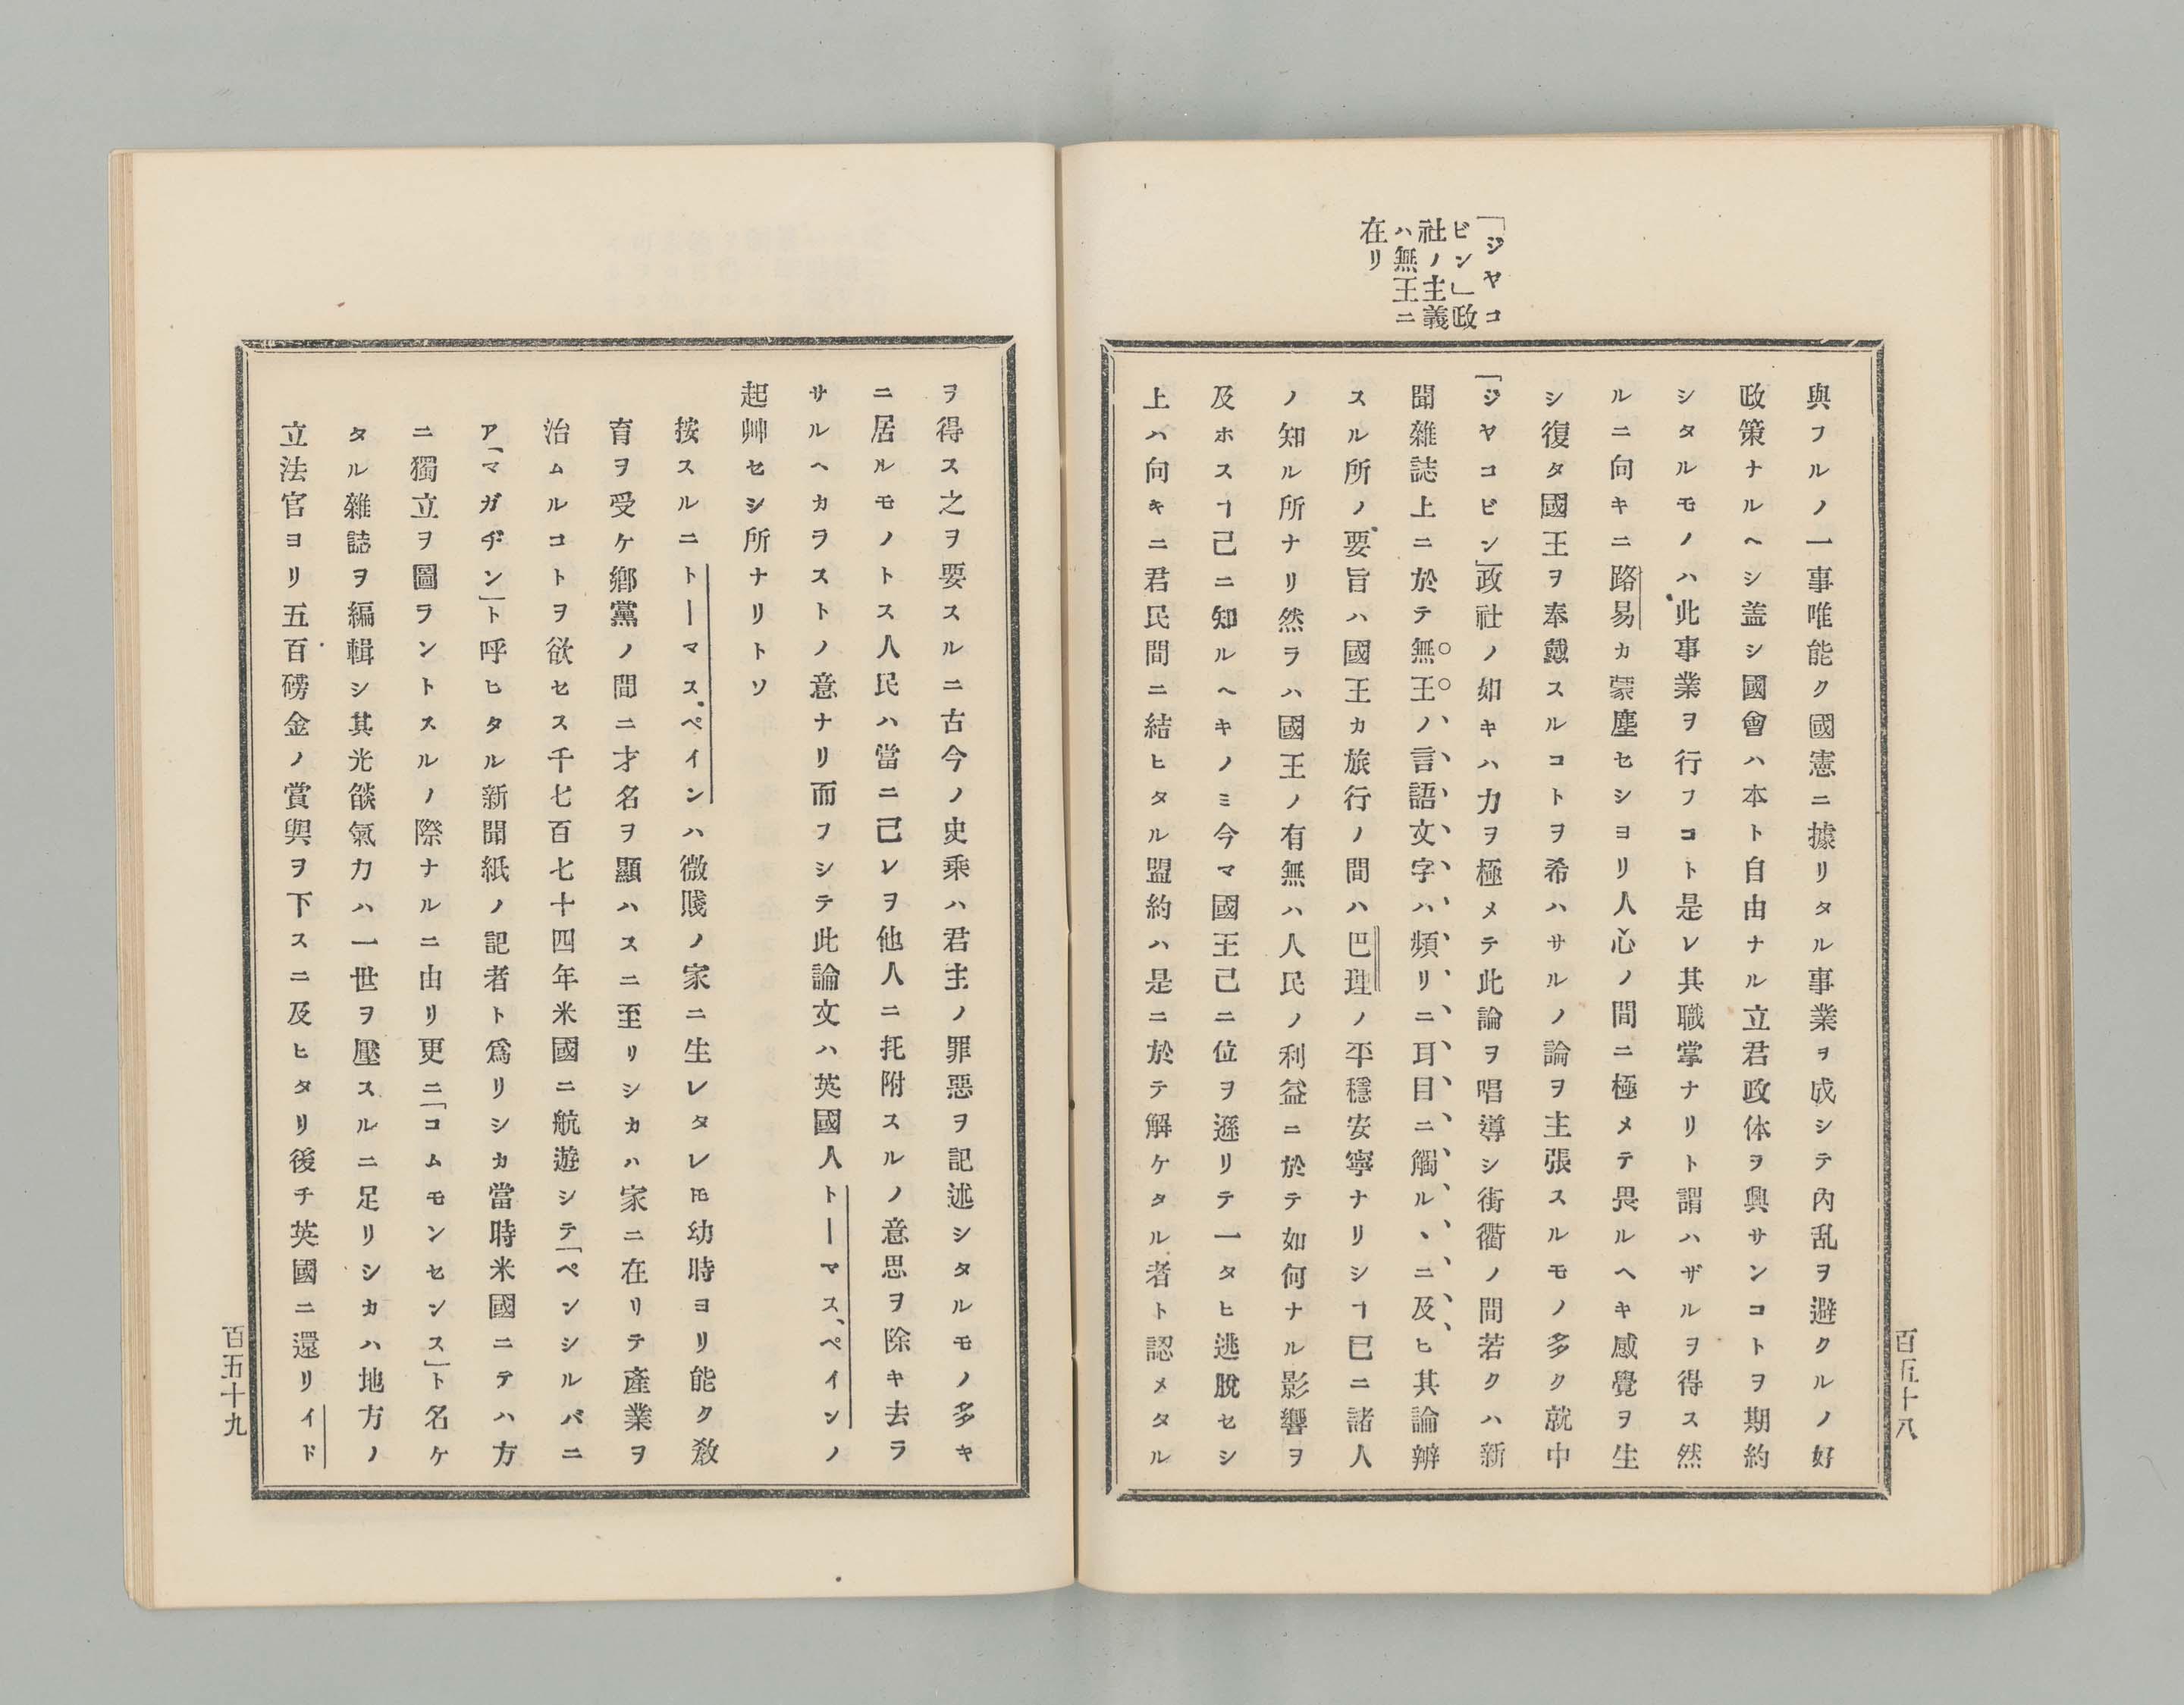 百五十八
「ジヤコ
ビン」政
社ノ主義
ハ無王ニ
在リ
與フルノ一事唯能ク國憲ニ據リタル事業ヲ成シテ內乱ヲ避クルノ好
政策ナルヘシ盖シ國會ハ本ト自由ナル立君政体ヲ興サンコトヲ期約
シタルモノハ此事業ヲ行フコト是レ其職掌ナリト謂ハザルヲ得ス然
ルニ向キニ路易カ蒙塵セシヨリ人心ノ間ニ極メテ畏ルヘキ感覺ヲ生
シ復タ國王ヲ奉戴スルコトヲ希ハサルノ論ヲ主張スルモノ多ク就中
「ジヤコビン」政社ノ如キハ力ヲ極メテ此論ヲ唱導シ街衢ノ間若クハ新
聞雜誌上ニ於テ無王ノ言語文字ハ頻リニ耳目ニ觸ルヽニ及ヒ其論辨
スル所ノ要旨ハ國王カ旅行ノ間ハ巴理ノ平穩安寧ナリシヿ已ニ諸人
ノ知ル所ナリ然ラハ國王ノ有無ハ人民ノ利益ニ於テ如何ナル影響ヲ
及ホスヿ己ニ知ルヘキノミ今マ國王己ニ位ヲ遜リテ一タヒ逃脫セシ
上ハ向キニ君民間ニ結ヒタル盟約ハ是ニ於テ解ケタル者ト認メタル
ヲ得ス之ヲ要スルニ古今ノ史乘ハ君主ノ罪惡ヲ記述シタルモノ多キ
ニ居ルモノトス人民ハ當ニ己レヲ他人ニ托附スルノ意思ヲ除キ去ラ
サルヘカラストノ意ナリ而フシテ此論文ハ英國人トーマス、ペインノ
起艸セシ所ナリトソ
按スルニトーマス、ペインハ微賤ノ家ニ生レタレ𪜈幼時ヨリ能ク敎
育ヲ受ケ鄕黨ノ間ニ才名ヲ顯ハスニ至リシカハ家ニ在リテ產業ヲ
治ムルコトヲ欲セス千七百七十四年米國ニ航遊シテ「ペンシルバニ
ア「マガヂン」ト呼ヒタル新聞紙ノ記者ト爲リシカ當時米國ニテハ方
ニ獨立ヲ圖ラントスルノ際ナルニ由リ更ニ「コムモンセンス」ト名ケ
タル雜誌ヲ編輯シ其光燄氣力ハ一世ヲ壓スルニ足リシカハ地方ノ
立法官ヨリ五百磅金ノ賞與ヲ下スニ及ヒタリ後チ英國ニ還リイド
百五十九